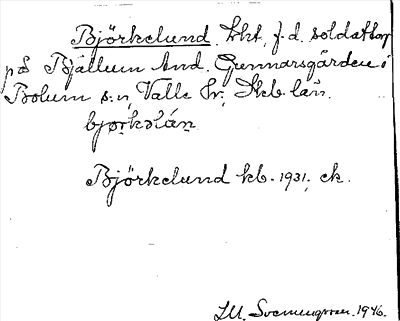 Björkelund, lht, f.d. soldattorp
på Bjällum And. Gunnarsgården i
Bolum s:n, Valle hr, Skb. län.
Björkelund kb. 1931, ek.
1946.